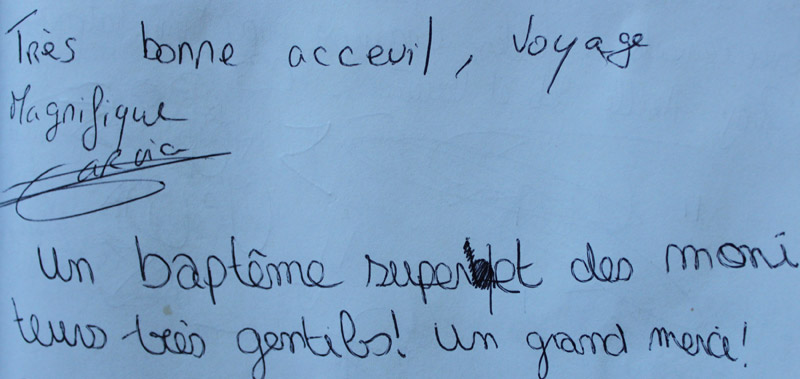 Très bonne acceuil, Voyage
Magnifique
un baptême super et des moni
teurs très gentils! un grand merci!